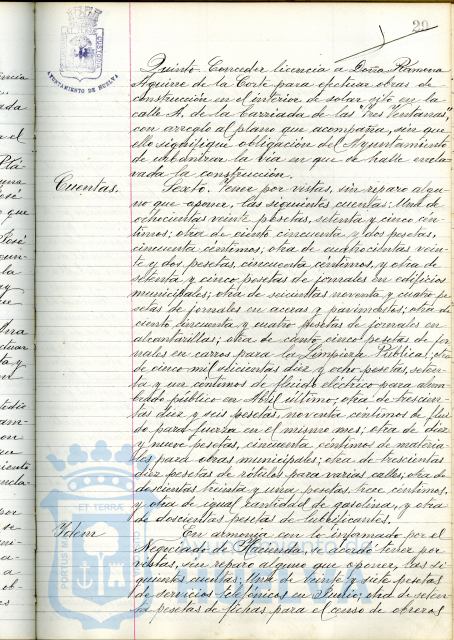 20
AYUNTAMIENTO DE HUELVA
Quinto. Conceder licencia a Doña Ramona
Aguirre de la Corte para efectuar obras de
construcción en el interior de solar sito en la
calle A, de la Barriada de las "Tres Ventanas",
con arreglo al plano que acompaña, sin que
ello signifique obligación del Ayuntamiento
de urbanizar la vía en que se halle encla-
vada la construcción.
Cuentas.
Sexto. Tener por vistas, sin reparo algu-
no que oponer, las siguientes cuentas: Una de
ochocientas veinte pesetas, setenta y cinco cén-
timos; otra de ciento cincuenta y dos pesetas,
cincuenta céntimos; otra de cuatrocientas vein-
te y dos pesetas, cincuenta céntimos, y otra de
setenta y cinco pesetas de jornales en edificios
municipales; otra de seiscientas noventa y cuatro pe-
setas de jornales en aceras y pavimentos; otra de
ciento cincuenta y cuatro pesetas de jornales en
alcantarillas; otra de ciento cinco pesetas de jor-
nales en carros para la Limpieza Pública; otra
de cinco mil seiscientas diez y ocho pesetas, seten-
ta y un céntimos de flúido eléctrico para alum-
brado público en Abril último; otra de trescien-
tas diez y seis pesetas, noventa céntimos de flui-
do para fuerza en el mismo mes; otra de diez
y nueve pesetas, cincuenta céntimos de materia-
les para obras municipales; otra de trescientas
diez pesetas de rótulos para varias calles; otra de
doscientas treinta y una pesetas, trece céntimos,
y otra de igual cantidad de gasolina, y otra
de doscientas pesetas de lubrificantes.
Idem
En armonía con lo informado por el
Negociado de Hacienda, se acordó tener por
vistas, sin reparo alguno que oponer, las si-
guientes cuentas: Una de veinte y siete pesetas
de servicios telefónicos en Junio; otra de seten-
ta pesetas de fichas para el censo de obreros
ET TERRA